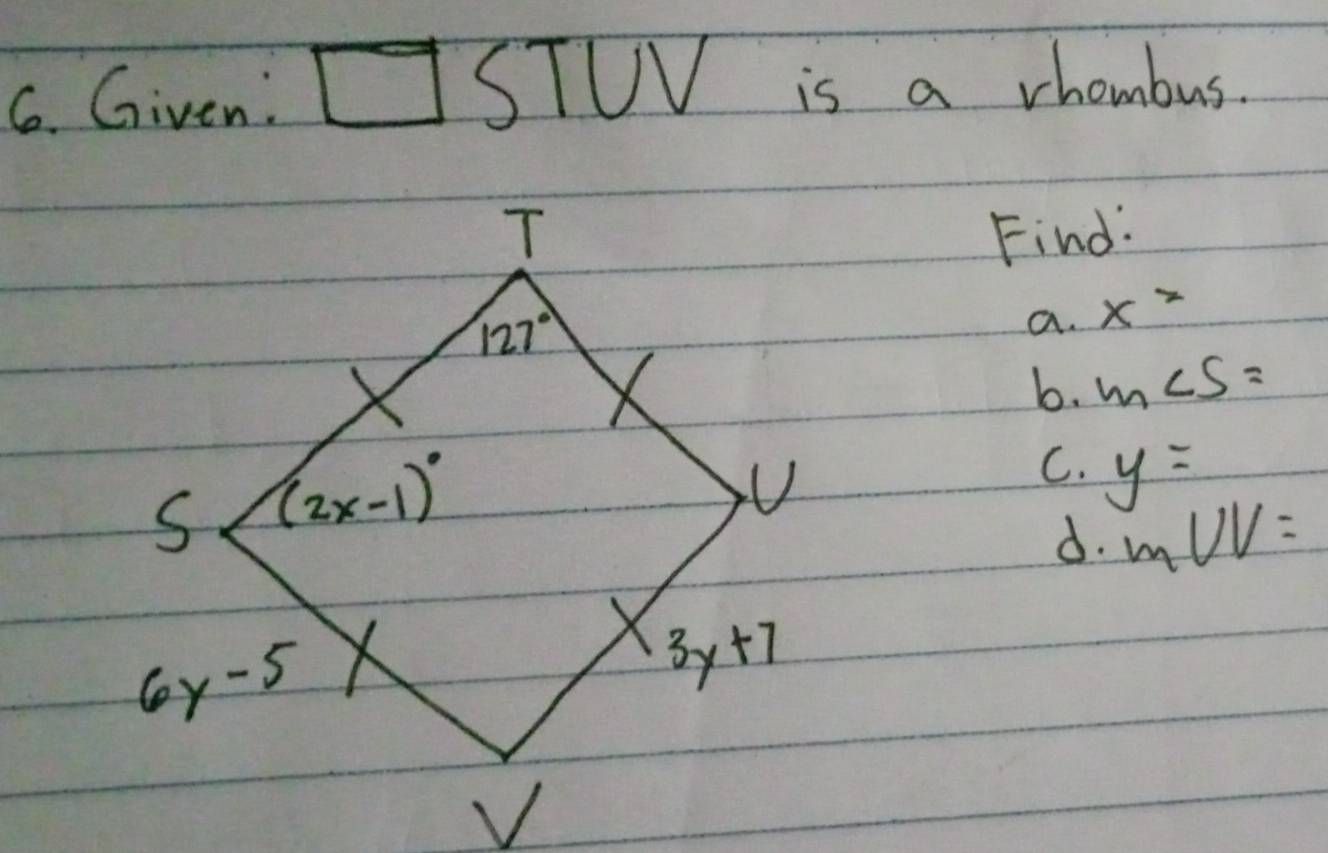 6. Given: □ STUV is a rhombus.
T
Find:
127°
a. x =
b. m<S=
c. y =
S
(2x-1)°
U
d. mUV=
6y-5
3y+7
V